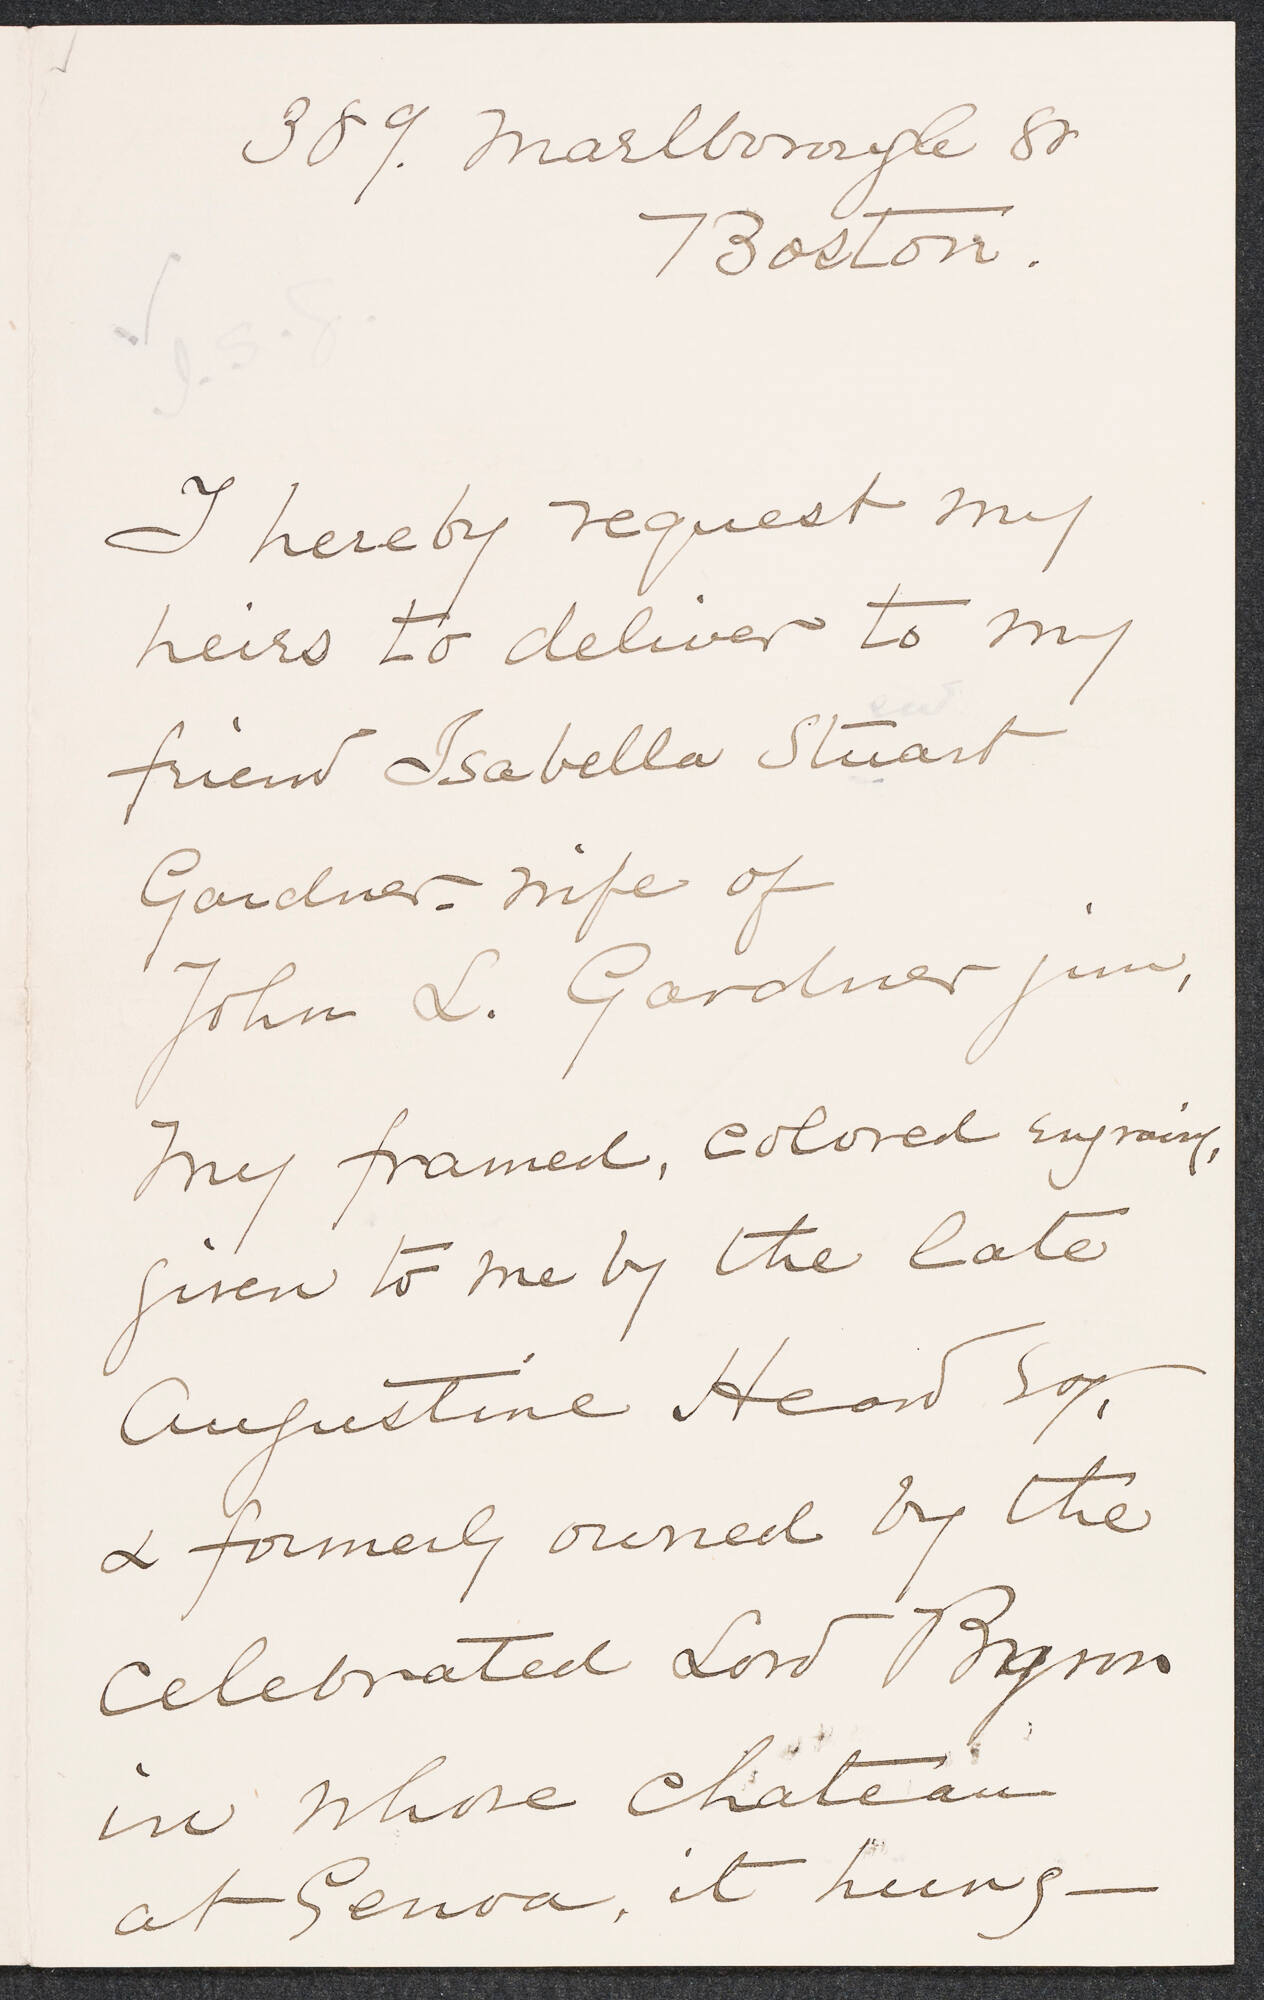 389. Marlborough St
Boston.
I hereby request my
heirs to deliver to my
friend Isabella Stuart
Gardner - wife of
John L. Gardner jun,
My framed, colored engraving,
given to me by the late
Augustine Heard Esq,
& formerly owned by the
celebrated Lord Byron
in whose chateau
at Genoa, it hung —